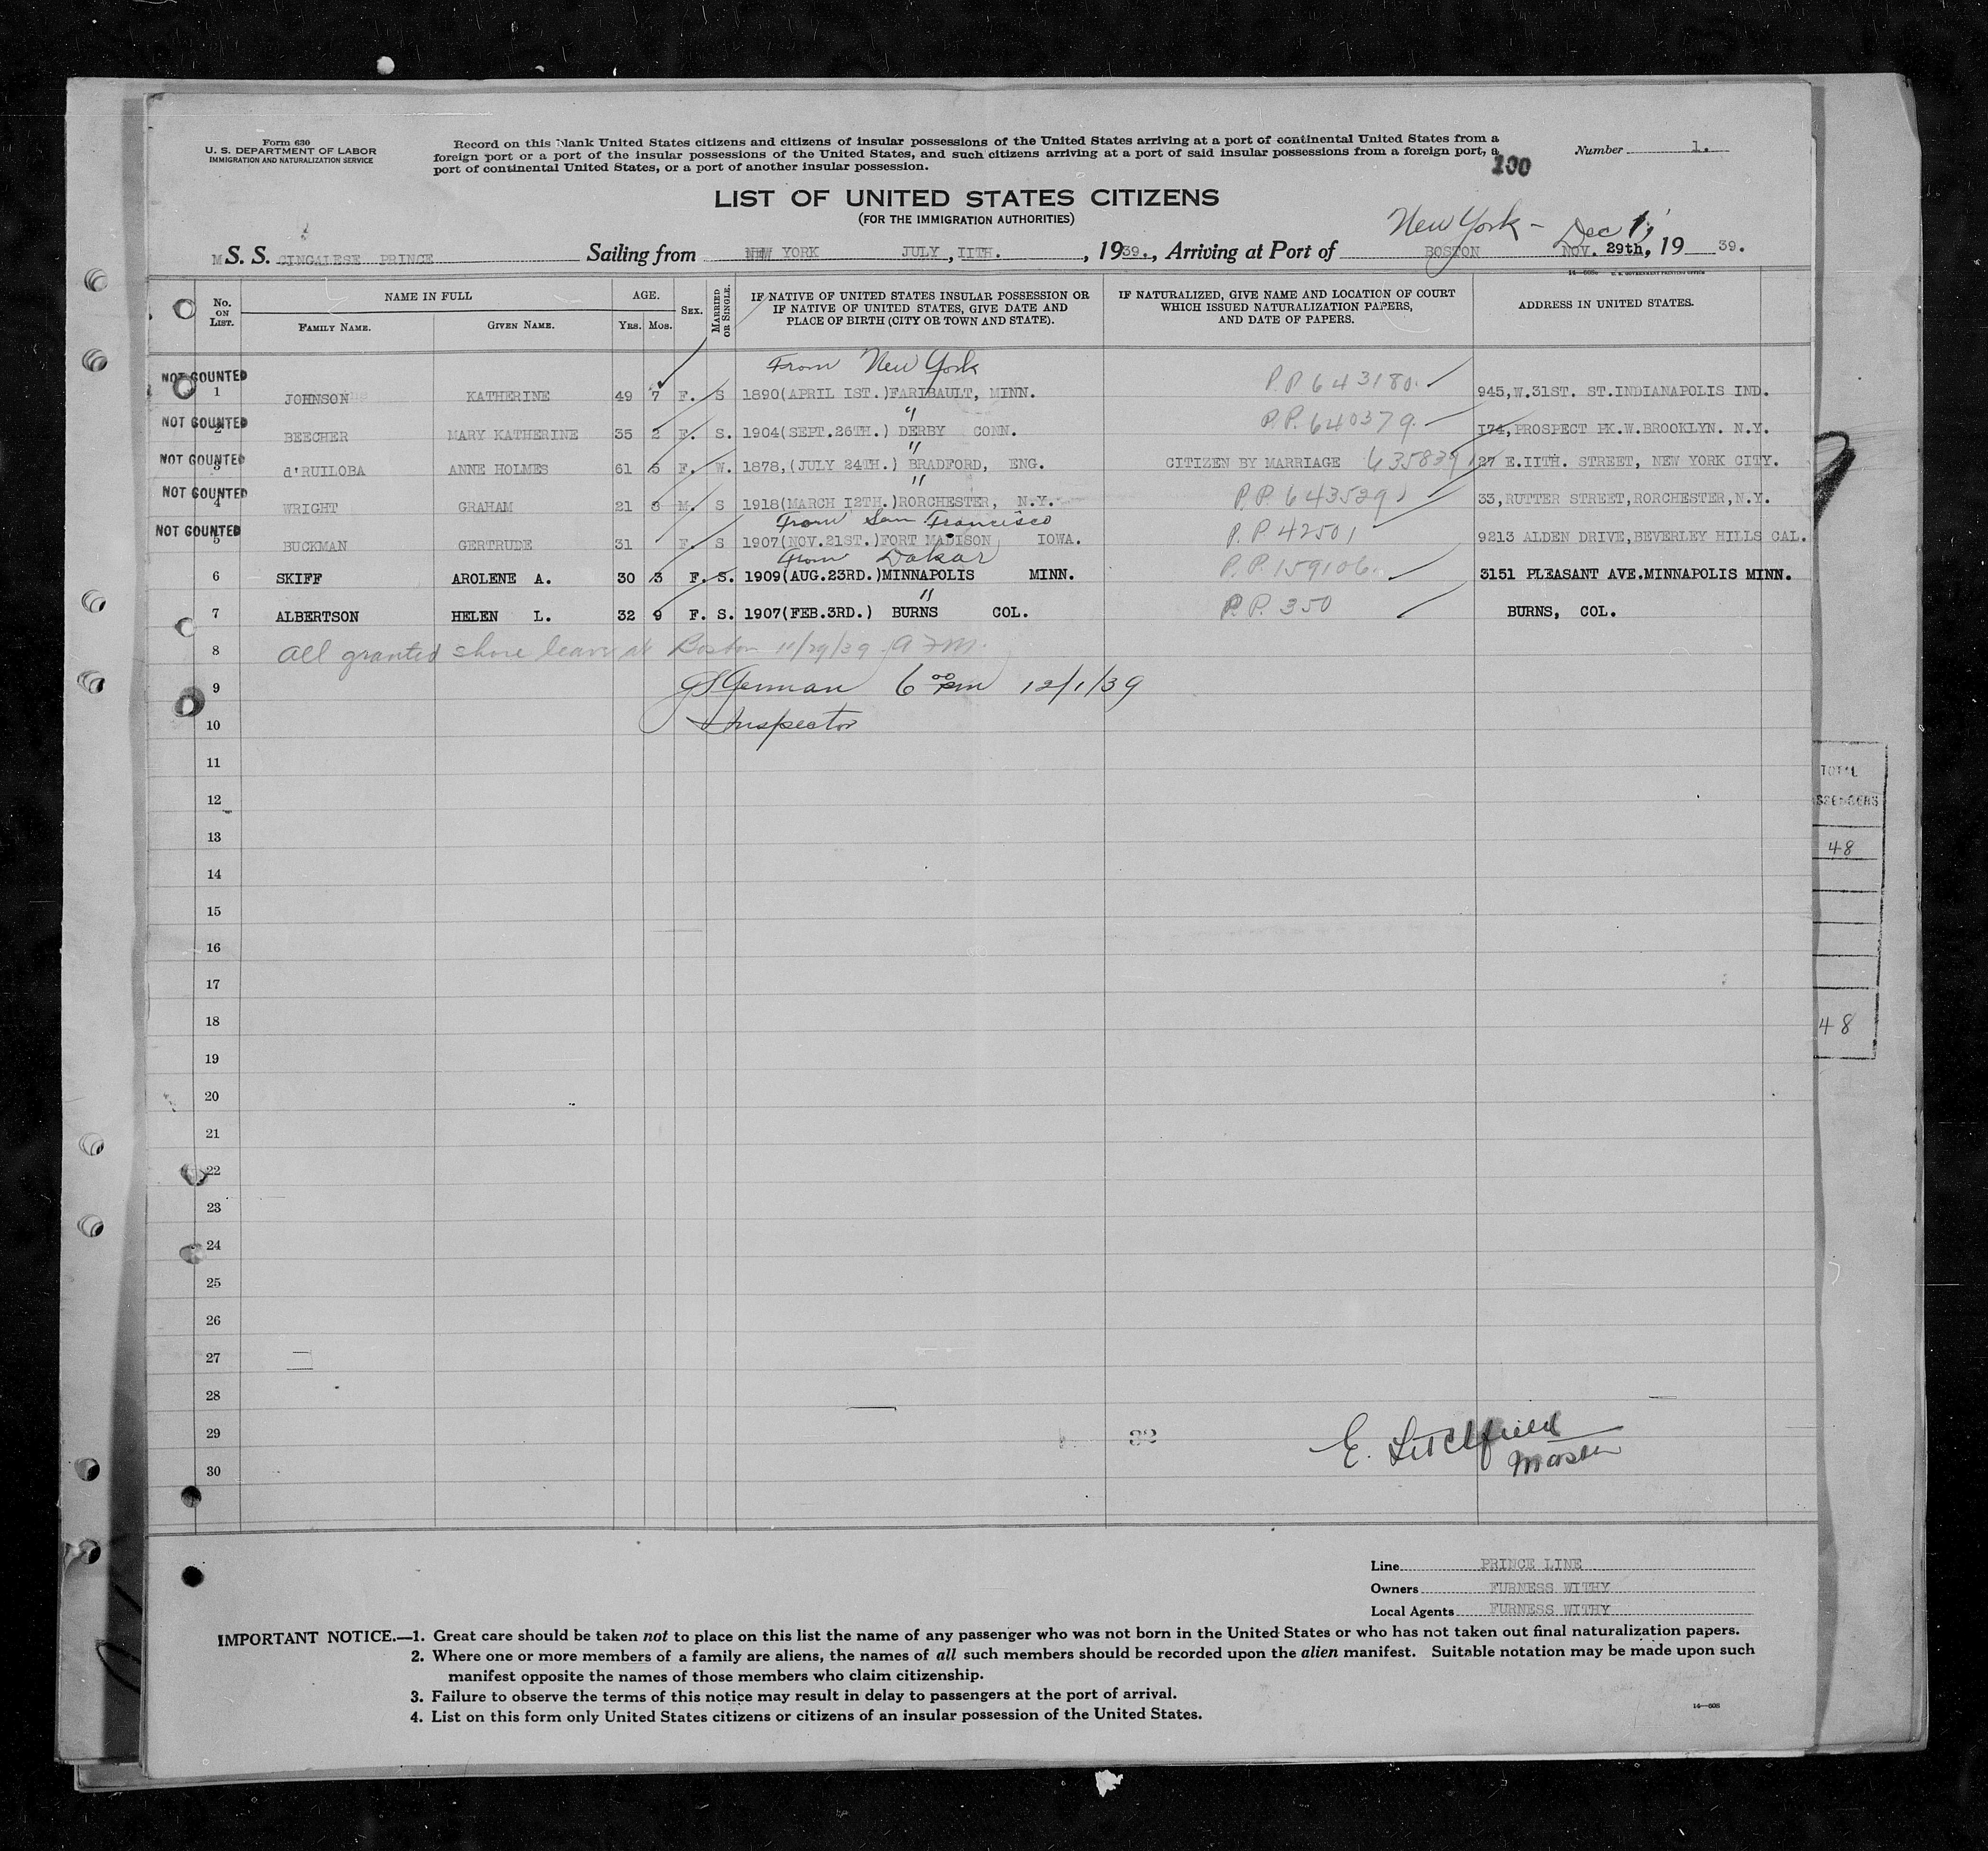 Form 630
U. S. DEPARTMENT OF LABOR
IMMIGRATION AND NATURALIZATION SERVICE
Record on this blank United States citizens and citizens of insular possessions of the United States arriving at a port of continental United States from a
foreign port or a port of the insular possessions of the United States, and such citizens arriving at a port of said insular possessions from a foreign port, a
port of continental United States, or a port of another insular possession.
Number 1.
100
LIST OF UNITED STATES CITIZENS
(FOR THE IMMIGRATION AUTHORITIES)
New York - Dec 1,
M S. S. CINGALESE PRINCE Sailing from NEW YORK JULY, IITH., 1939., Arriving at Port of BOSTON NOV. 29th, 19 39.
No. ON LIST. NAME IN FULL AGE. SEX. MARRIED OR SINGLE. IF NATIVE OF UNITED STATES INSULAR POSSESSION OR IF NATIVE OF UNITED STATES, GIVE DATE AND PLACE OF BIRTH (CITY OR TOWN AND STATE). IF NATURALIZED, GIVE NAME AND LOCATION OF COURT WHICH ISSUED NATURALIZATION PAPERS, AND DATE OF PAPERS. ADDRESS IN UNITED STATES.
FAMILY NAME. GIVEN NAME. YRS. MOS.
From New York
NOT COUNTED
1 JOHNSON KATHERINE 49 7 F. S 1890(APRIL IST.)FARIBAULT, MINN. P.P. 643180. 945,W.31ST. ST.INDIANAPOLIS IND.
NOT COUNTED "
2 BEECHER MARY KATHERINE 35 2 F. S. 1904(SEPT.26TH.) DERBY CONN. P.P. 640379. I74,PROSPECT PK.W.BROOKLYN. N.Y.
NOT COUNTED "
3 d'RUILOBA ANNE HOLMES 61 5 F. W. 1878,(JULY 24TH.) BRADFORD, ENG. CITIZEN BY MARRIAGE 635839 127 E.IITH. STREET, NEW YORK CITY.
NOT COUNTED "
4 WRIGHT GRAHAM 21 8 M. S 1918(MARCH I2TH.)RORCHESTER, N.Y. P.P. 643529 33,RUTTER STREET,RORCHESTER,N.Y.
From San Francisco
NOT COUNTED
5 BUCKMAN GERTRUDE 31 F. S 1907(NOV.21ST.)FORT MADISON IOWA. P.P. 42501 9213 ALDEN DRIVE,BEVERLEY HILLS CAL.
From Dakar
6 SKIFF AROLENE A. 30 3 F. S. 1909(AUG.23RD.)MINNAPOLIS MINN. P.P. 159106. 3151 PLEASANT AVE.MINNAPOLIS MINN.
"
7 ALBERTSON HELEN L. 32 9 F. S. 1907(FEB.3RD.) BURNS COL. P.P. 350 BURNS, COL.
8 All granted shore leave at Boston 11/29/39
9 6 00 pm 12/1/39
10 Inspector
11
12
13
14
15
16
17
18
19
20
21
22
23
24
25
26
27
28
29
30
32
E. Litchfield
Master
TOTAL
48
48
Line PRINCE LINE
Owners FURNESS WITHY
Local Agents FURNESS WITHY
IMPORTANT NOTICE.—1. Great care should be taken not to place on this list the name of any passenger who was not born in the United States or who has not taken out final naturalization papers.
2. Where one or more members of a family are aliens, the names of all such members should be recorded upon the alien manifest. Suitable notation may be made upon such
manifest opposite the names of those members who claim citizenship.
3. Failure to observe the terms of this notice may result in delay to passengers at the port of arrival.
4. List on this form only United States citizens or citizens of an insular possession of the United States.
14—608